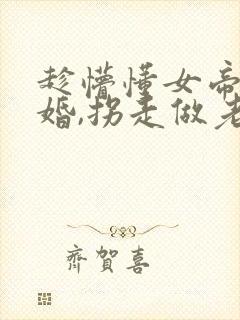 趁懵懂女帝
婚,拐走做老
齊賀喜